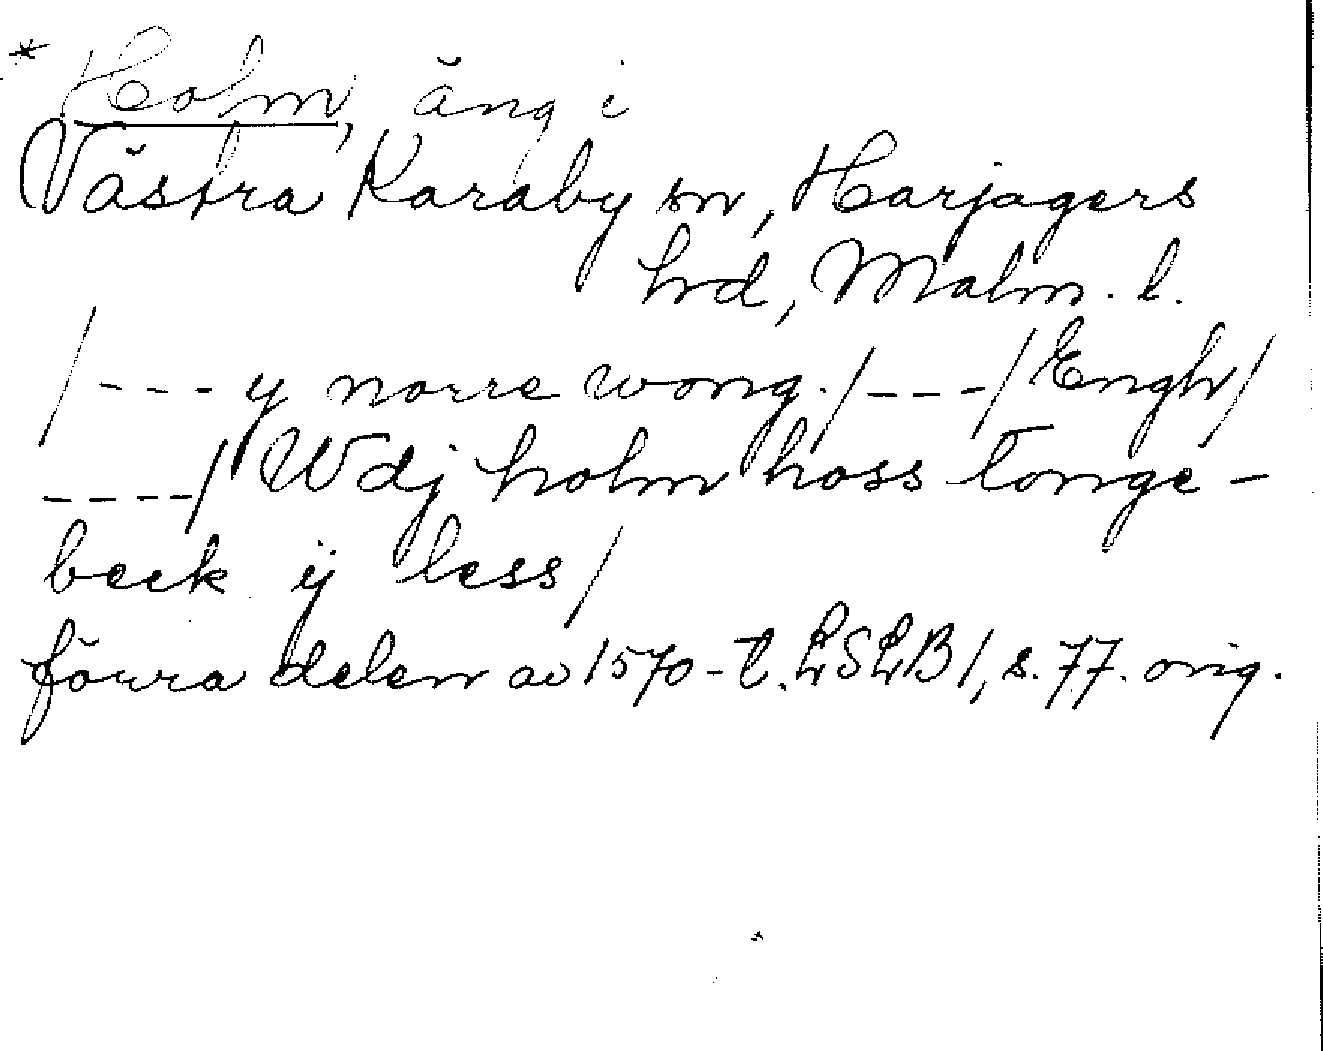 * Holm, äng i
Västra Karaby sn, Harjagers
hrd, Malm. l.
/--- y norre wong. /---/ Engh /
----/ Wdj holm hoss Tonge-
beck ij less /
förra delen av 1570-t. LSLB 1, s. 77. orig.